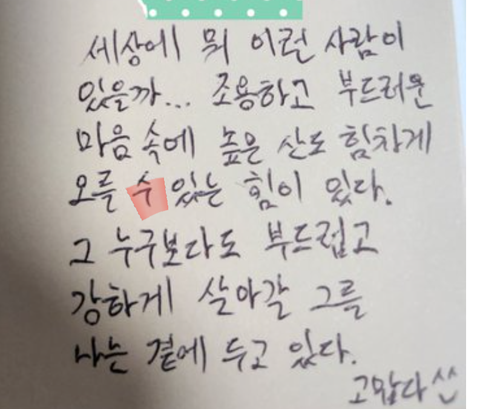 세상에 뭐 이런 사람이
있을까... 조용하고 부드러운
마음 속에 높은 산도 힘차게
오를 수 있는 힘이 있다.
그 누구보다도 부드럽고
강하게 살아갈 그를
나는 곁에 두고 있다.
고맙다 ^^